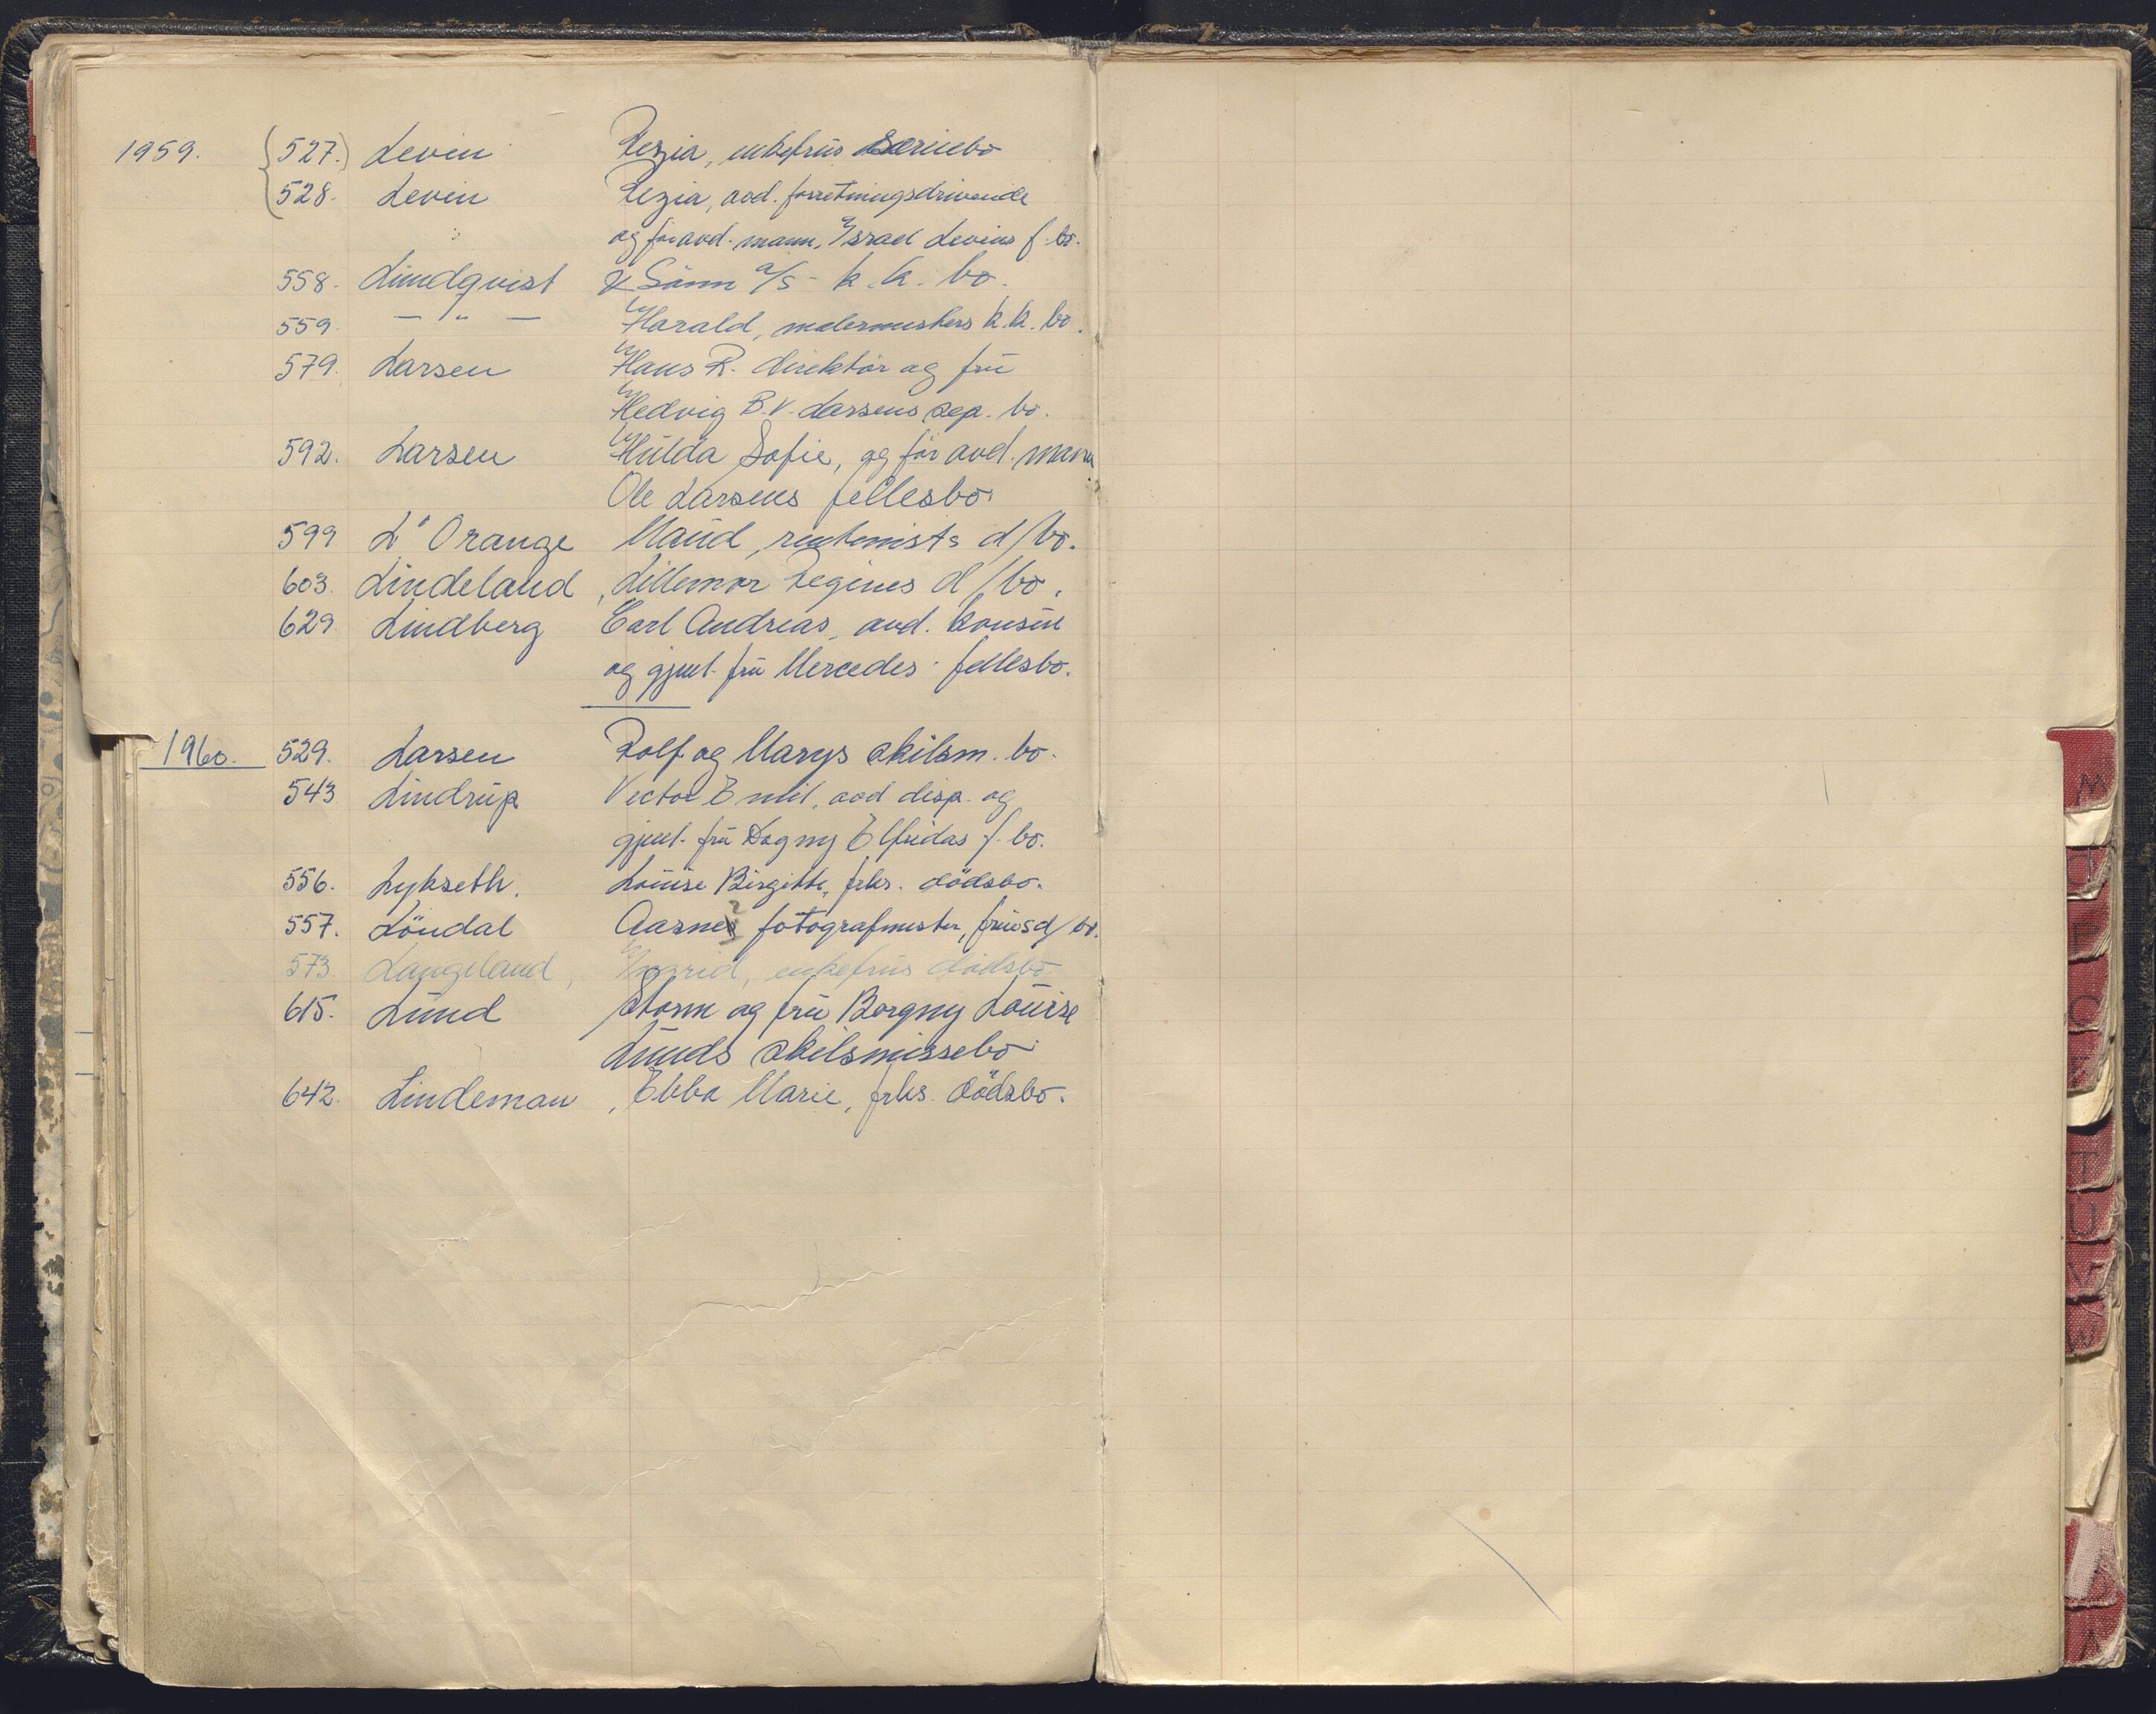 1959. (527.) Levin Rezia, enkefrus særiebo
528. Levin Rezia, avd. forretningsdrivende
og før avd. mann, Israel Levins f. bo.
558. Lundqvist & Sønn A/S - k.k. bo.
559. — " — Harald, malermesters k.k. bo.
579. Larsen Hans R. direktør og fru
Hedvig B.V. Larsens sep. bo.
592. Larsen Hulda Sofie, og før avd. mann
Ole Larsens fellesbo
599 L'Orange Maud, rentenists d/bo.
603. Lindeland, Lillemor Regines d/bo.
629. Lindberg Carl Andreas, avd. konsul
og gjenl. fru Mercedes fellesbo.
1960. 529. Larsen Rolf og Marys skilsm. bo.
543 Lindrup Victor Emil, avd disp. og
gjenl. fru Dagny Elfridas f. bo.
556. Lykseth. Louise Birgitte, frks. dödsbo.
557. Löndal Aarne fotografmester, frues d/bo.
573. Langeland, Ingrid, enkefrus dödsbo
615. Lund Storm og fru Borgny Louise
Lunds skilsmissebo
642. Lindeman, Ebba Marie, frks. dödsbo.
M
P
T
U
V
W